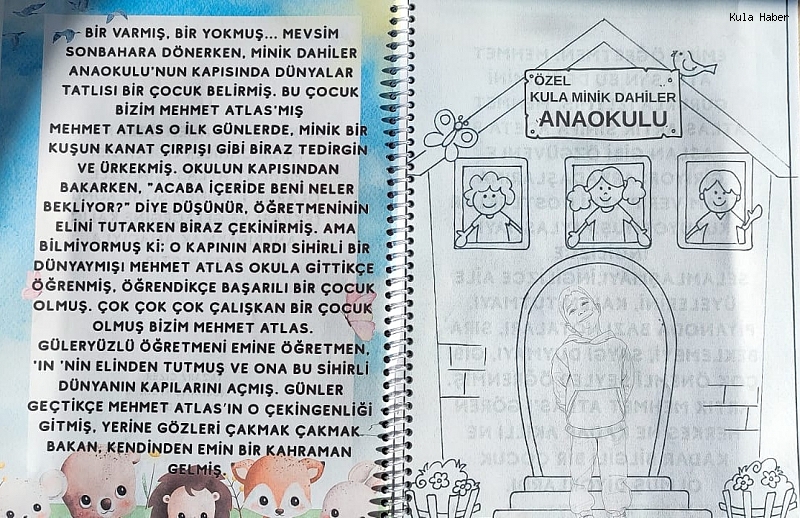 Kula Haber
BİR VARMIŞ, BİR YOKMUŞ... MEVSİM
SONBAHARA DÖNERKEN, MİNİK DAHİLER
ANAOKULU'NUN KAPISINDA DÜNYALAR
TATLISI BİR ÇOCUK BELİRMİŞ. BU ÇOCUK
BİZİM MEHMET ATLAS'MIŞ
MEHMET ATLAS O İLK GÜNLERDE, MİNİK BİR
KUŞUN KANAT ÇIRPIŞI GİBİ BİRAZ TEDİRGİN
VE ÜRKEKMİŞ. OKULUN KAPISINDAN
BAKARKEN, "ACABA İÇERİDE BENİ NELER
BEKLİYOR?" DİYE DÜŞÜNÜR, ÖĞRETMENİNİN
ELİNİ TUTARKEN BİRAZ ÇEKİNİRMİŞ. AMA
BİLMİYORMUŞ Kİ: O KAPININ ARDI SİHİRLİ BİR
DÜNYAYMIŞI MEHMET ATLAS OKULA GİTTİKÇE
ÖĞRENMİŞ, ÖĞRENDİKÇE BAŞARILI BİR ÇOCUK
OLMUŞ. ÇOK ÇOK ÇOK ÇALIŞKAN BİR ÇOCUK
OLMUŞ BİZİM MEHMET ATLAS.
GÜLERYÜZLÜ ÖĞRETMENİ EMİNE ÖĞRETMEN,
'IN 'NİN ELİNDEN TUTMUŞ VE ONA BU SİHİRLİ
DÜNYANIN KAPILARINI AÇMIŞ. GÜNLER
GEÇTİKÇE MEHMET ATLAS'IN O ÇEKİNGENLİĞİ
GİTMİŞ, YERİNE GÖZLERİ ÇAKMAK ÇAKMAK
BAKAN, KENDİNDEN EMİN BİR KAHRAMAN
GELMİŞ.
ÖZEL
KULA MİNİK DAHİLER
ANAOKULU